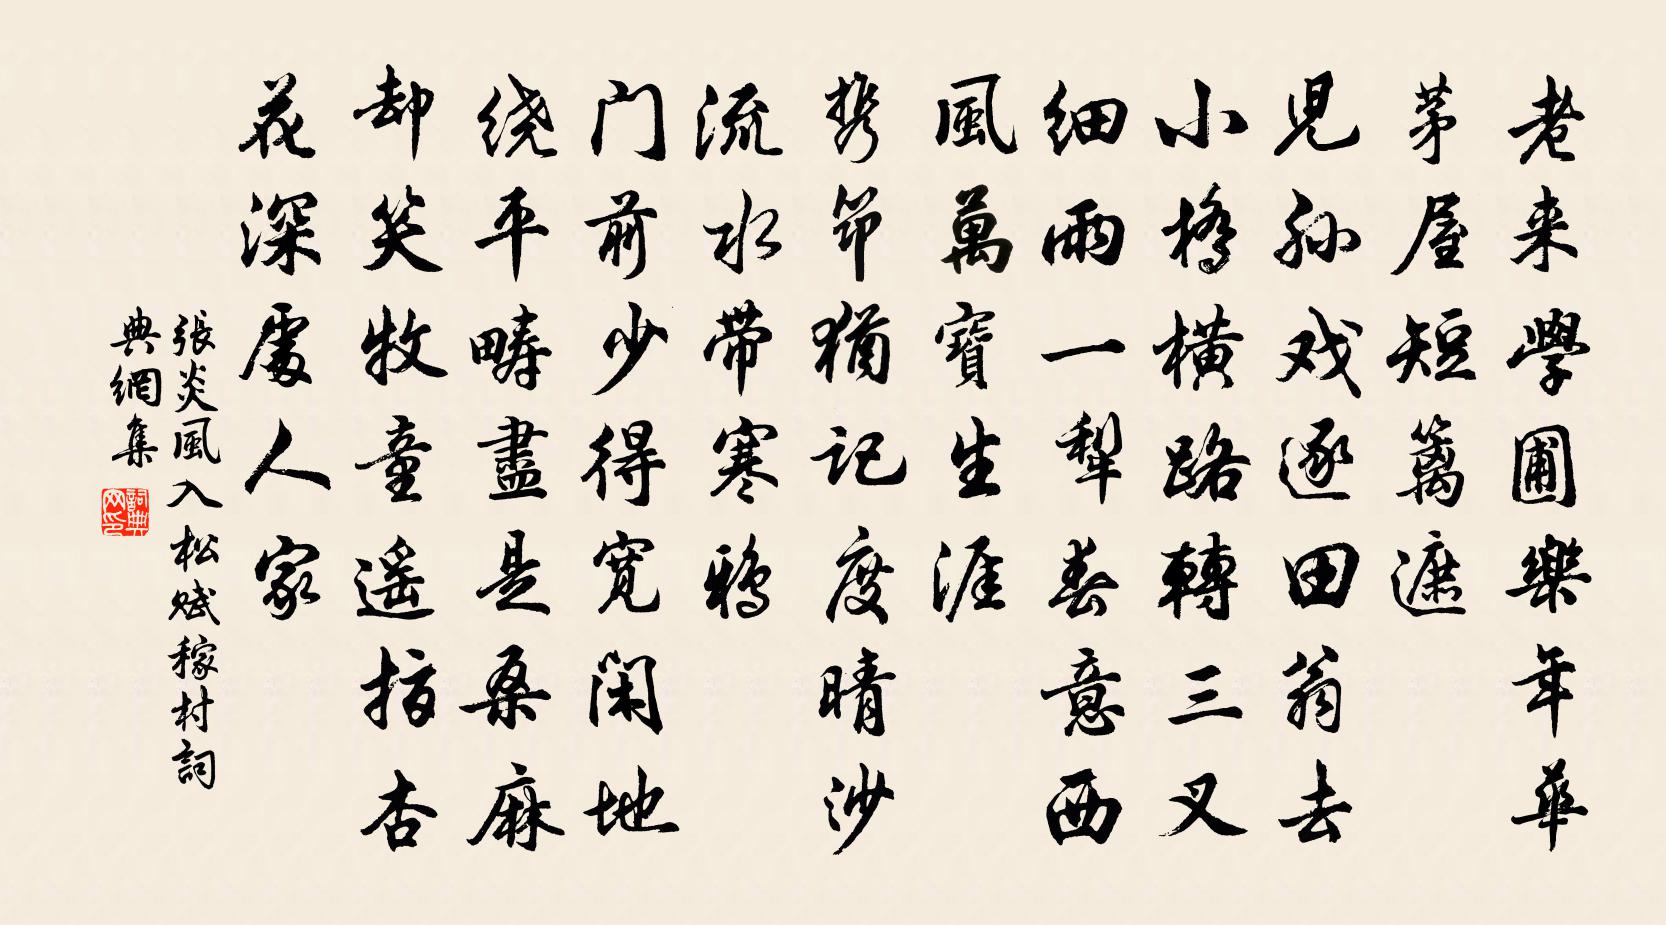 老来學圃樂年華
茅屋短篱遮
児孙戏逐田翁去
小橋横路轉三叉
细雨一犁春意西
風萬寶生涯
携筇猶记度晴沙
流水带寒鸦
门前少得宽闲地
绕平疇盡是桑麻
却笑牧童遥指杏
花深處人家
張炎風入松赋稼村詞
典網集
詞典网印